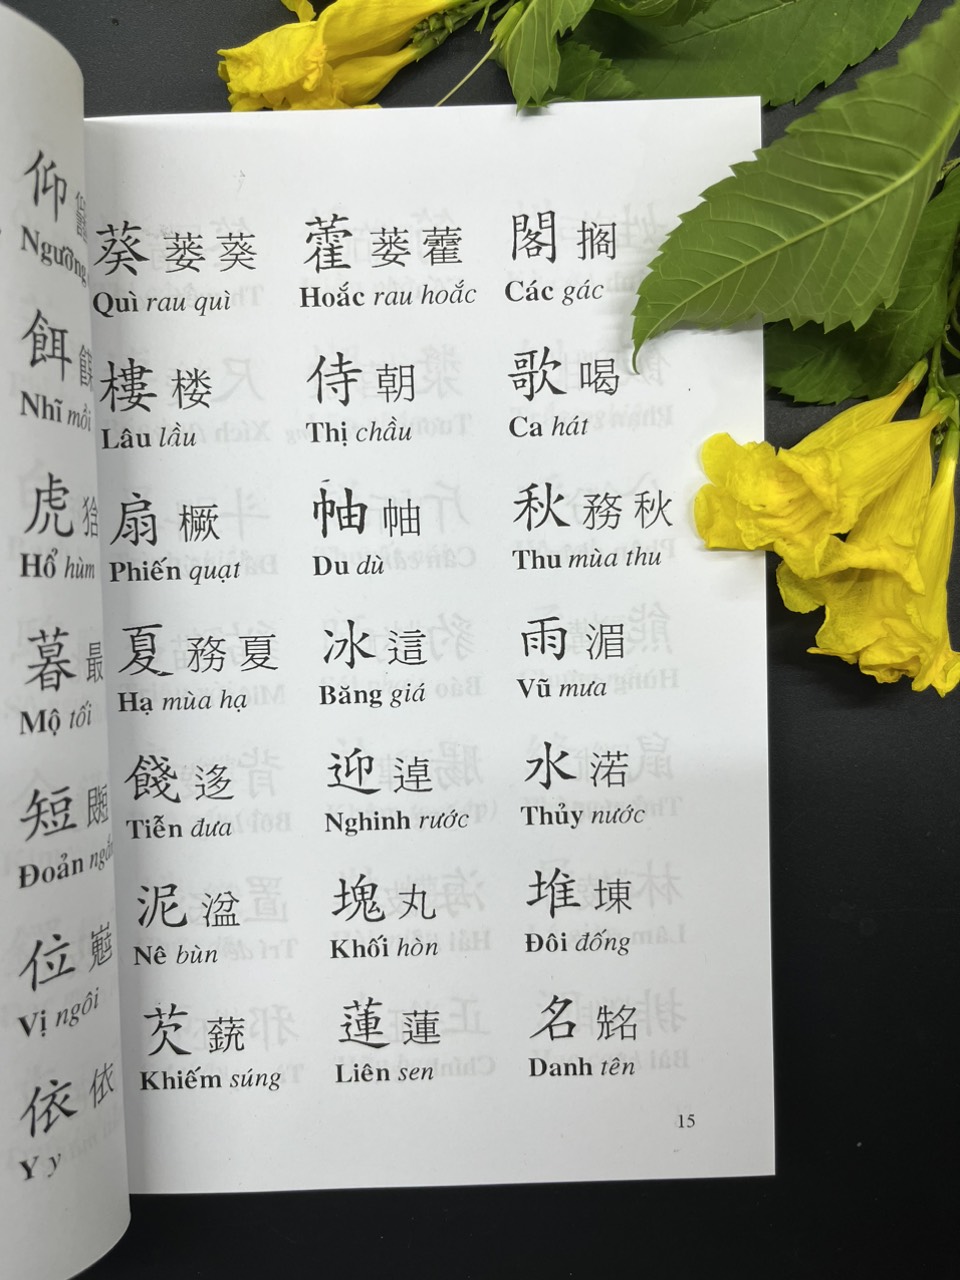 仰
Ngưỡng
餌
Nhĩ mồi
虎
Hổ hùm
暮 最
Mộ tối
短
Đoản ngắn
位
Vị ngôi
依 依
Y y
葵 蒌 葵 藿 蒌 藿 閣 搁
Quì rau quì Hoắc rau hoắc Các gác
樓 楼 侍 朝 歌 喝
Lâu lầu Thị chầu Ca hát
扇 橛 怞 怞 秋 務 秋
Phiến quạt Du dù Thu mùa thu
夏 務 夏 冰 這 雨 湄
Hạ mùa hạ Băng giá Vũ mưa
餞 迻 迎 逴 水 渃
Tiễn đưa Nghinh rước Thủy nước
泥 湓 塊 丸 堆 埬
Nê bùn Khối hòn Đôi đống
芡 蓮 蓮 名
Khiếm súng Liên sen Danh tên
15